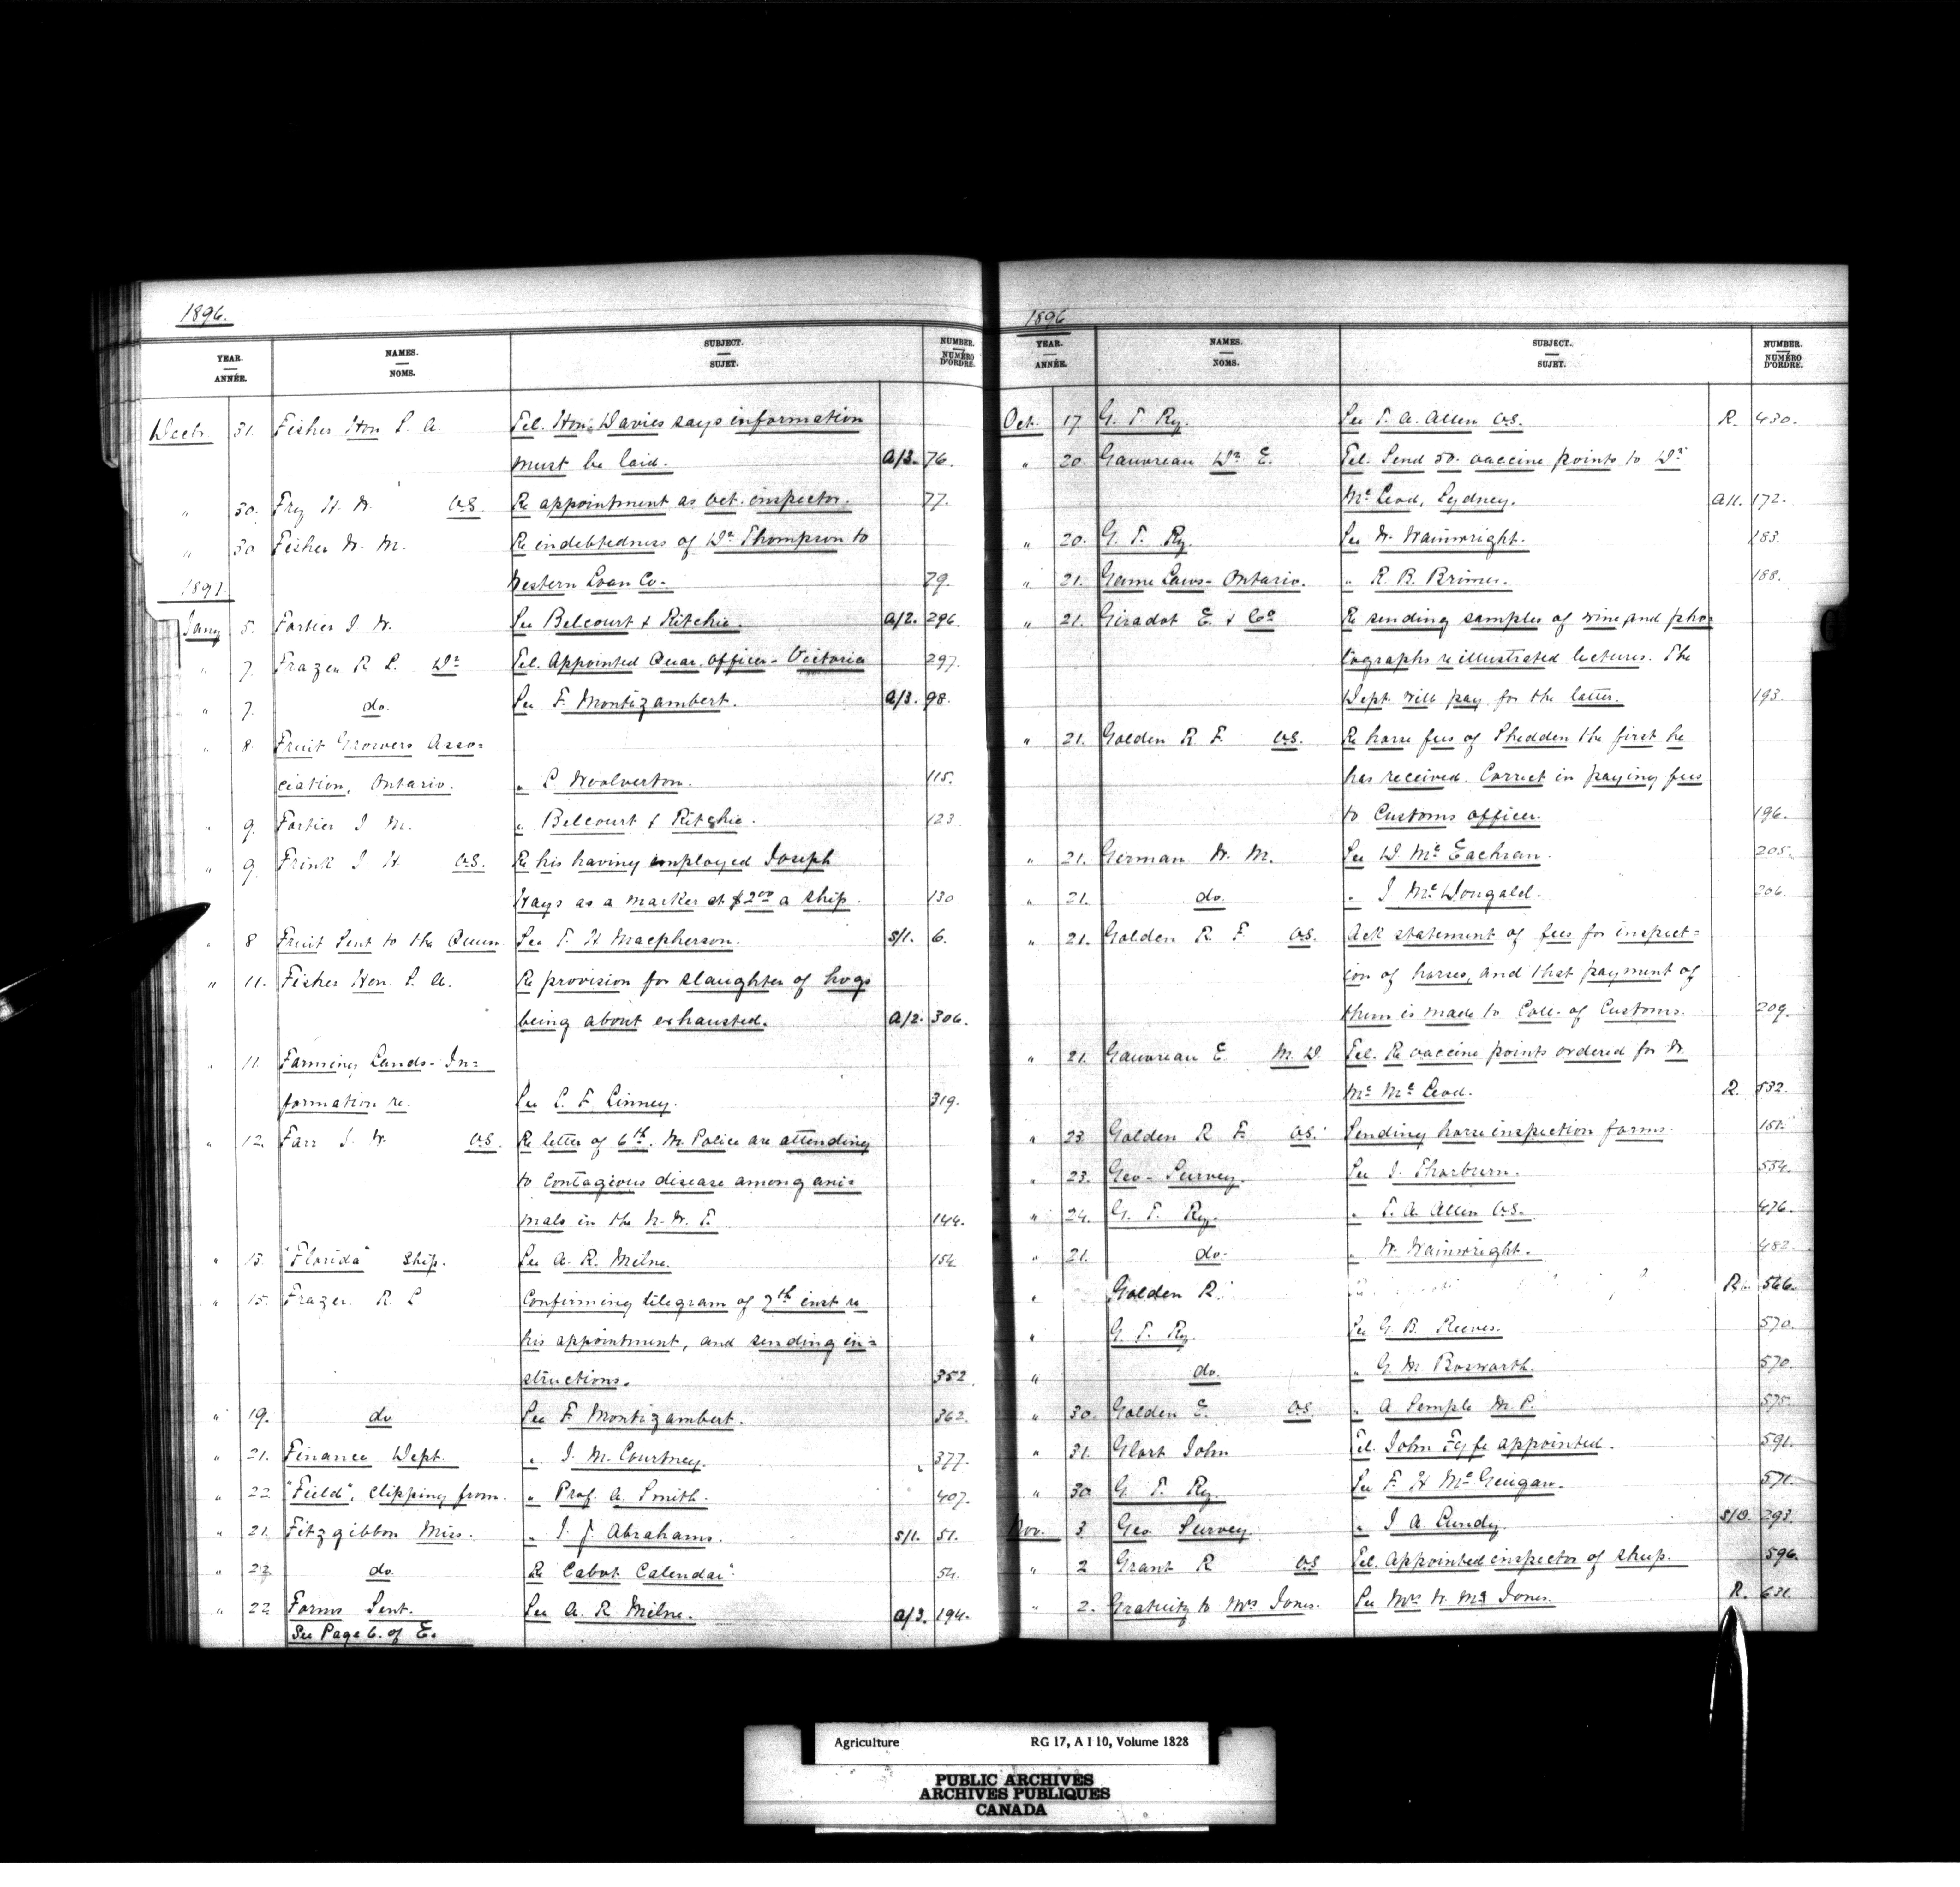 1896.
YEAR. ANNÉE. NAMES. NOMS. SUBJECT. SUJET. NUMBER. NUMÉRO D'ORDRE.
Decbr 31. Fisher Hon S. A. Tel. Hon. Davies says information
must be laid. A/3. 76.
" 30. Fry H. W. V.S. Re appointment as Vet. inspector. 77.
" 30 Fisher W. M. Re indebtedness of Dr Thompson to
1897 Western Loan Co. 79.
Jany 5. Fortier J. W. See Belcourt & Ritchie. A/2. 296.
" 7. Frazer R. L. Dr Tel. Appointed Quar. officer - Victoria 297.
" 7. do. See F. Montizambert. A/3. 98.
" 8. Fruit Growers Asso=
ciation, Ontario. " L Woolverton. 115.
" 9. Fortier J M. " Belcourt & Ritchie. 123
" 9. Frink J H. V.S. Re his having employed Joseph
Hays as a marker at $2.00 a ship. 130
" 8 Fruit Sent to the Queen. See T. H Macpherson. S/1. 6.
" 11. Fisher Hon. S. A. Re provision for slaughter of hogs
being about exhausted. A/2. 306.
" 11. Farming Lands - In=
formation re. See C. F. Linney. 319.
" 12. Farr J. W. V.S. Re letter of 6th. M. Police are attending
to Contagious disease among ani=
mals in the N. W. T. 144.
" 13. "Florida" Ship. See A. R. Milne. 154
" 15. Frazer R. L Confirming telegram of 7th inst re
his appointment, and sending in=
structions. 352
" 19. do See F. Montizambert. 362.
" 21. Finance Dept. " J. M. Courtney. 377.
" 22 "Field", Clipping from. " Prof. A. Smith. 407.
" 21. Fitzgibbon Miss. " J. J. Abrahams. S/1. 51.
" 22 do. Re Cabot Calendar. 54.
" 22 Forms Sent. See A. R Milne. A/3. 194.
See Page 6. of E.
1896
YEAR. ANNÉE. NAMES. NOMS. SUBJECT. SUJET. NUMBER. NUMÉRO D'ORDRE.
Oct. 17 G. T. Ry. See T. A. Allen V.S. R. 430.
" 20. Gauvreau Dr E. Tel. Send 50. vaccine points to Dr
McLeod, Sydney. A11. 172.
" 20. G. T. Ry. See W. Wainwright. 183.
" 21. Game Laws - Ontario. " R. B. 188.
" 21. Giradot E. & Co Re sending samples of wine and pho=
tographs re illustrated lectures. The
Dept. will pay for the latter. 193.
" 21. Golden R. F. V.S. Re horse fees of Shedden the first he
has received. Correct in paying fees
to Customs officer. 196.
" 21. German W. M. See D. McEachran. 205.
" 21. do. " J McDougald. 206.
" 21. Golden R. F. V.S. Ack statement of fees for inspect=
ion of horses, and that payment of
them is made to Coll. of Customs. 209.
" 21. Gauvreau E. M. D. Tel. Re vaccine points ordered for W.
Mc McLeod. R. 532.
" 23. Golden R. F. V.S. Sending horse inspection forms. 151.
" 23. Geo - Survey. See J. Thorburn. 554.
" 24. G. T. Ry. " T. A. Allen V.S. 476.
" 21. do. " W. Wainwright. 482.
" Golden R. R. 566.
" G. T. Ry. See G. B. Reeves. 570.
" do. " G. M. Bosworth. 570.
" 30. Golden E. V.S. " A Semple M. P. 575.
" 31. John Tel. John Fyfe appointed. 591.
" 30 G. T. Ry. See F. H McGuigan. 571.
Nov. 3 Geo. Survey " J A. Lundy. S/O. 293.
" 2 Grant R V.S Tel. Appointed inspector of sheep. 596.
" 2. Gratuity to Mrs Jones. See Mrs Jones. R. 631.
Agriculture RG 17, A I 10, Volume 1828
PUBLIC ARCHIVES
ARCHIVES PUBLIQUES
CANADA